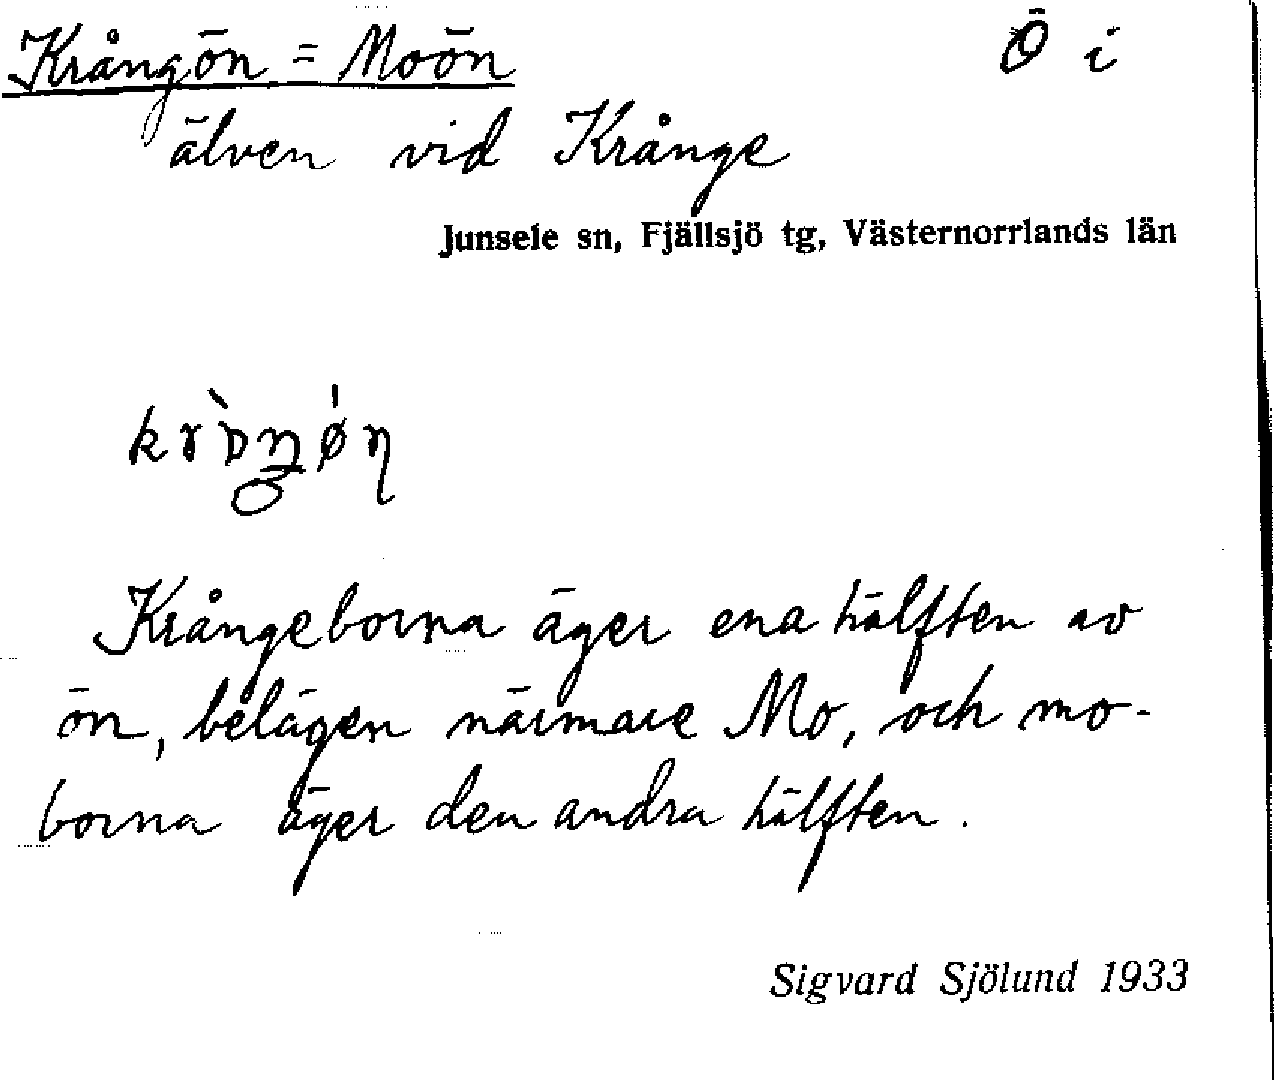 Krångön = Moön Ö i
älven vid Krånge
Junsele sn, Fjällsjö tg, Västernorrlands län
Krångeborna äger ena hälften av
ön, belägen närmare Mo, och mo-
borna äger den andra hälften.
Sigvard Sjölund 1933